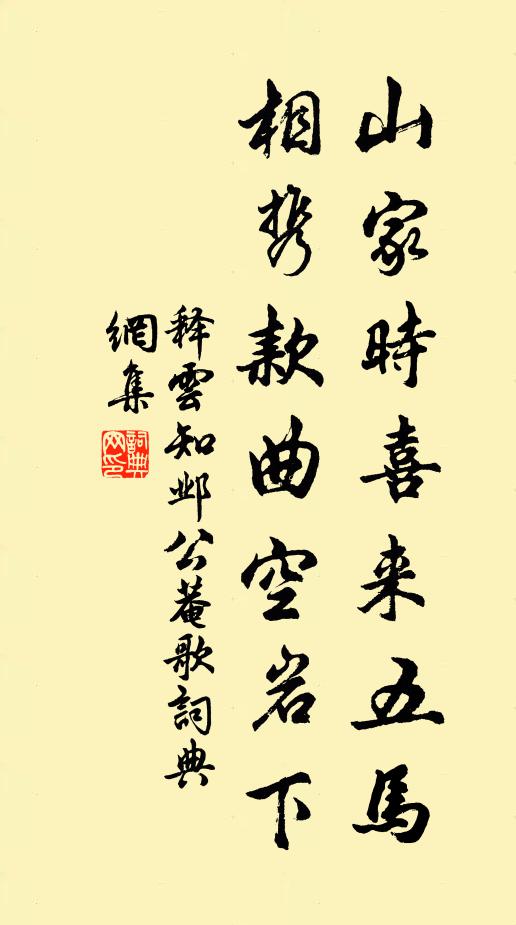 山家時喜来五馬
相携款曲空岩下
释雲知邺公菴歌詞典
網集
詞典网印